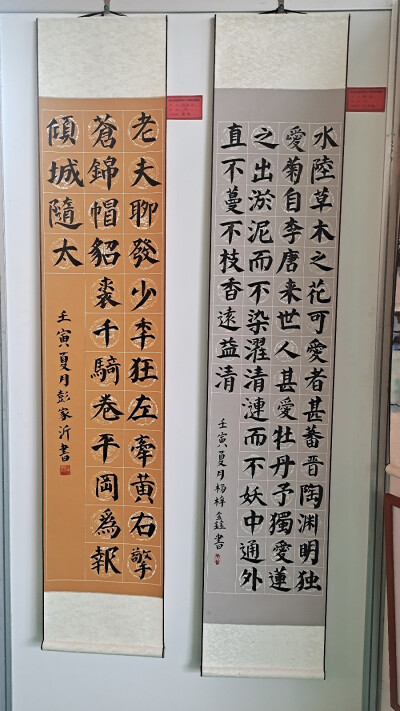 水陸草木之花可愛者甚蕃晉陶渊明独
愛菊自李唐来世人甚愛牡丹予獨愛蓮
之出淤泥而不染濯清漣而不妖中通外
直不蔓不枝香遠益清
壬寅夏月杨梓鑫書
老夫聊發少年狂左牽黃右擎
蒼錦帽貂裘千騎卷平岡爲報
傾城隨太
壬寅夏月彭家沂書